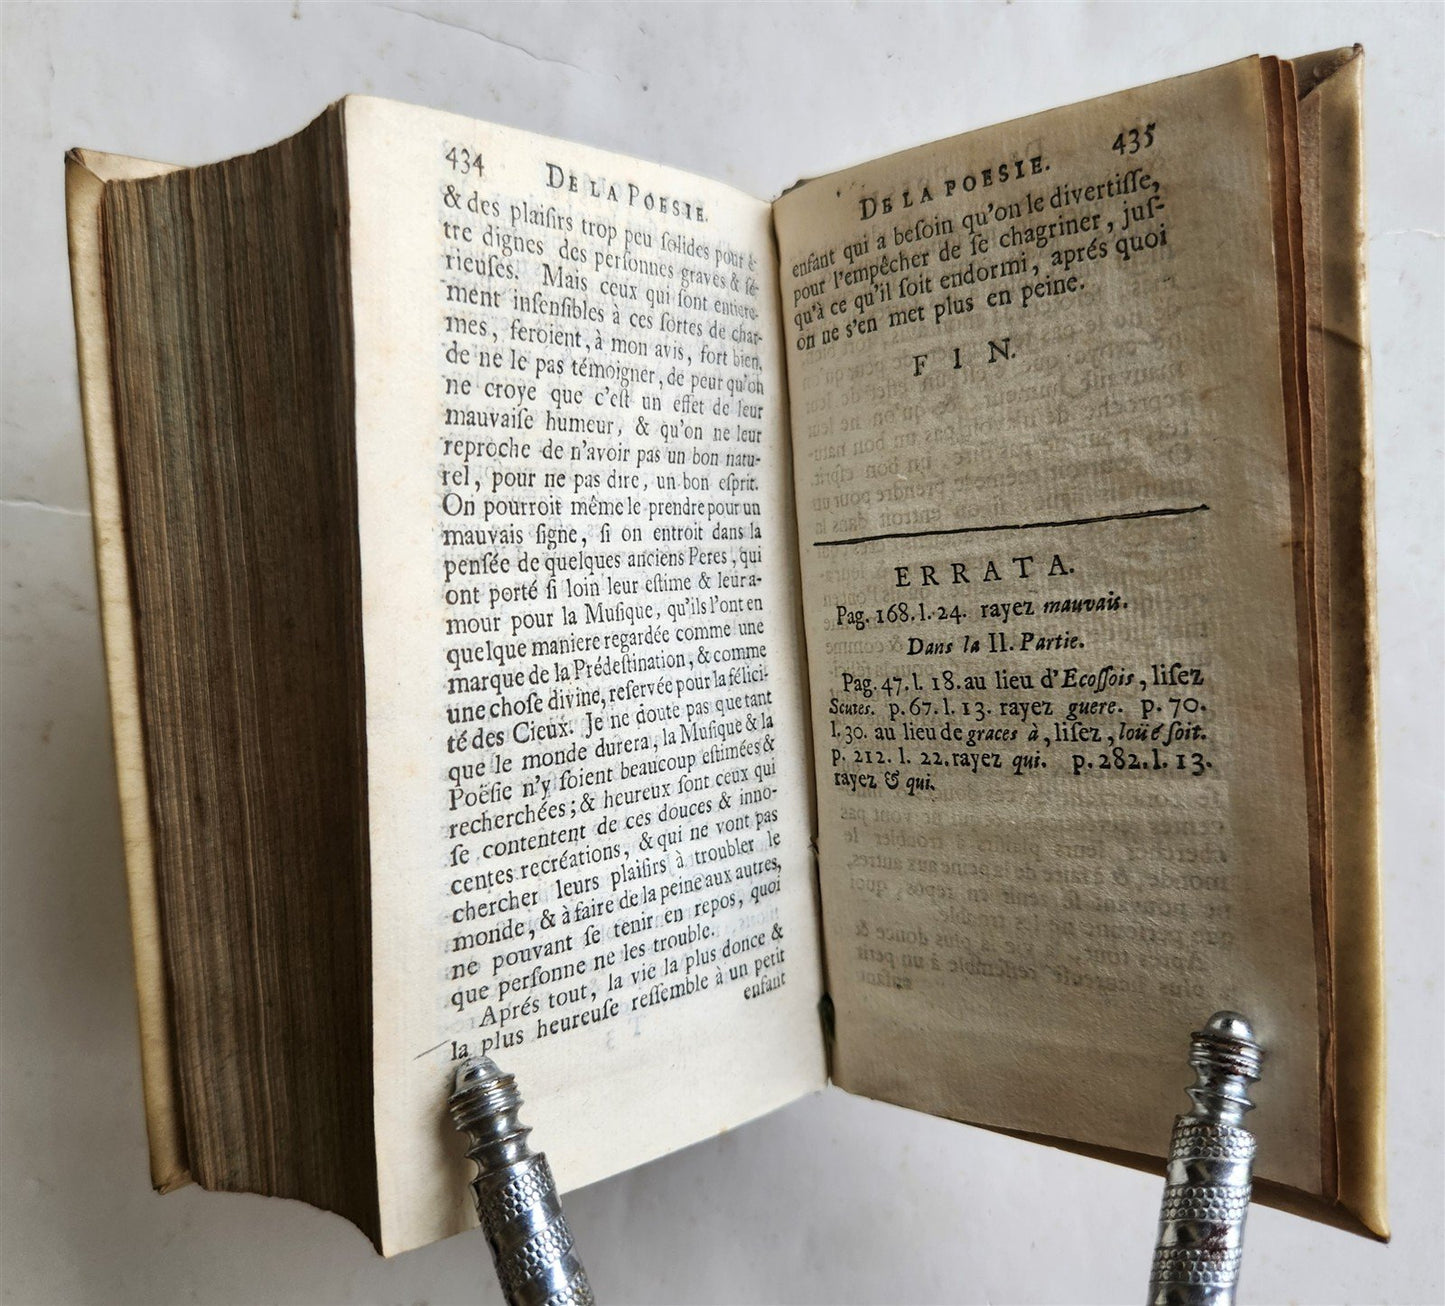 434 DE LA POESIE.
& des plaiſirs trop peu ſolides pour ê-
tre dignes des perſonnes graves & ſé-
rieuſes. Mais ceux qui ſont entiere-
ment inſenſibles à ces ſortes de char-
mes, feroient, à mon avis, fort bien,
de ne le pas témoigner, de peur qu'on
ne croye que c'eſt un effet de leur
mauvaiſe humeur, & qu'on ne leur
reproche de n'avoir pas un bon natu-
rel, pour ne pas dire, un bon eſprit.
On pourroit même le prendre pour un
mauvais ſigne, ſi on entroit dans la
penſée de quelques anciens Peres, qui
ont porté ſi loin leur eſtime & leur a-
mour pour la Muſique, qu'ils l'ont en
quelque maniere regardée comme une
marque de la Prédeſtination, & comme
une choſe divine, reſervée pour la félici-
té des Cieux. Je ne doute pas que tant
que le monde durera, la Muſique & la
Poëſie n'y ſoient beaucoup eſtimées &
recherchées; & heureux ſont ceux qui
ſe contentent de ces douces & inno-
centes recréations, & qui ne vont pas
chercher leurs plaiſirs à troubler le
monde, & à faire de la peine aux autres,
ne pouvant ſe tenir en repos, quoi
que perſonne ne les trouble.
Aprés tout, la vie la plus donce &
la plus heureuſe reſſemble à un petit
enfant
DE LA POESIE. 435
enfant qui a beſoin qu'on le divertiſſe,
pour l'empêcher de ſe chagriner, juſ-
qu'à ce qu'il ſoit endormi, aprés quoi
on ne s'en met plus en peine.
F I N.
ERRATA.
Pag. 168. l. 24. rayez mauvais.
Dans la II. Partie.
Pag. 47. l. 18. au lieu d'Ecoſſois, liſez
Scutes. p. 67. l. 13. rayez guere. p. 70.
l. 30. au lieu de graces à, liſez, loüé ſoit.
p. 212. l. 22. rayez qui. p. 282. l. 13.
rayez & qui.